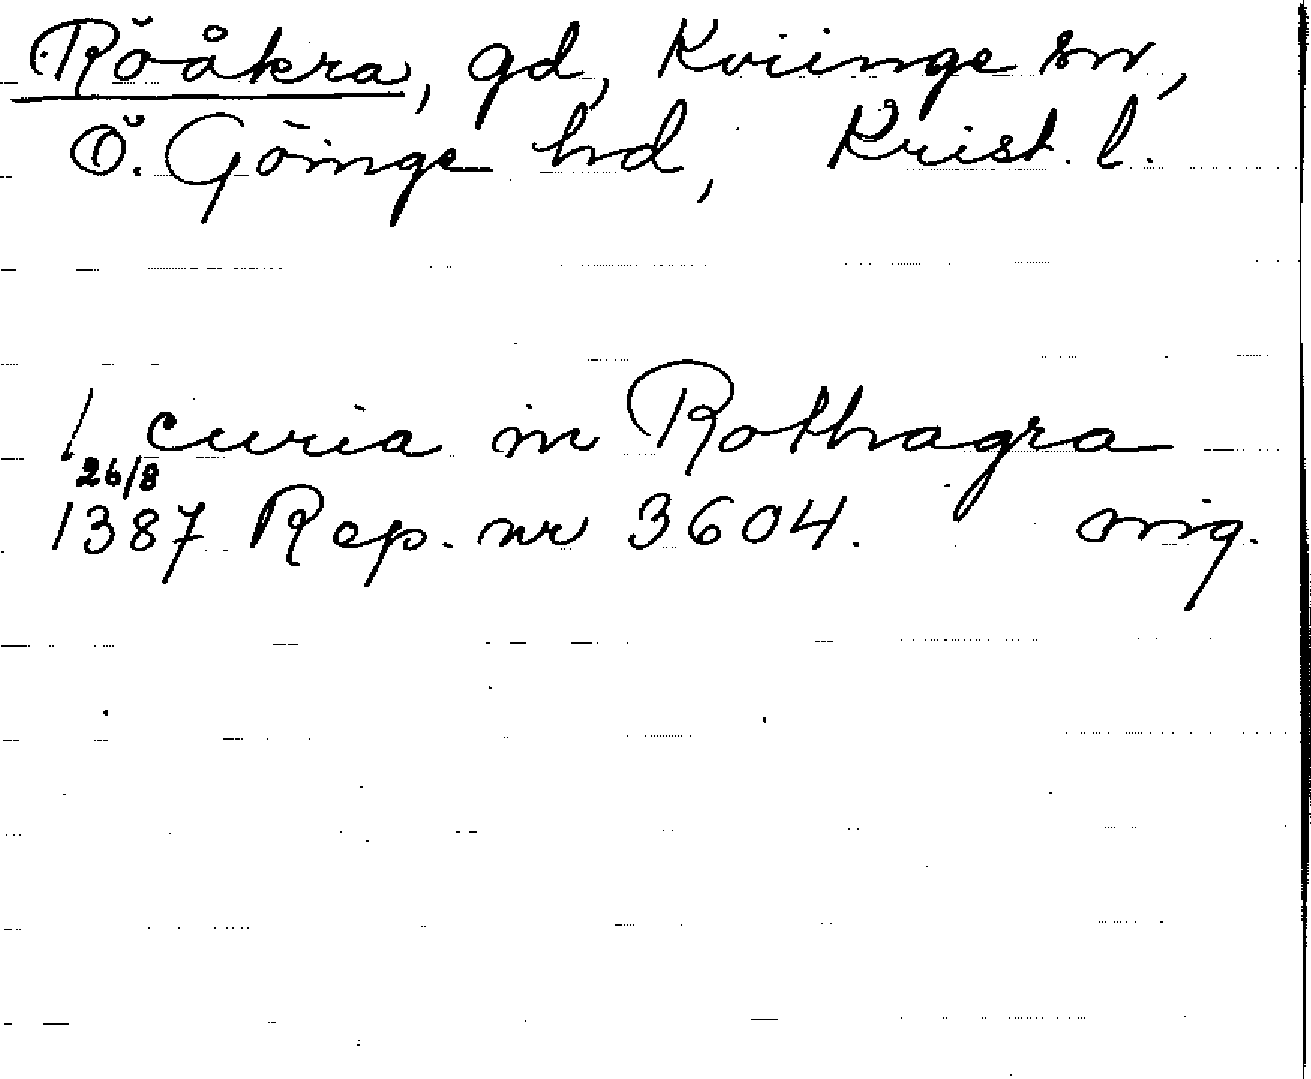 Röåkra, gd, Kviinge sn,
Ö. Göinge hd, Krist. l.
1 curia in Rothagra
26/8
1387 Rep. nr 3604. orig.